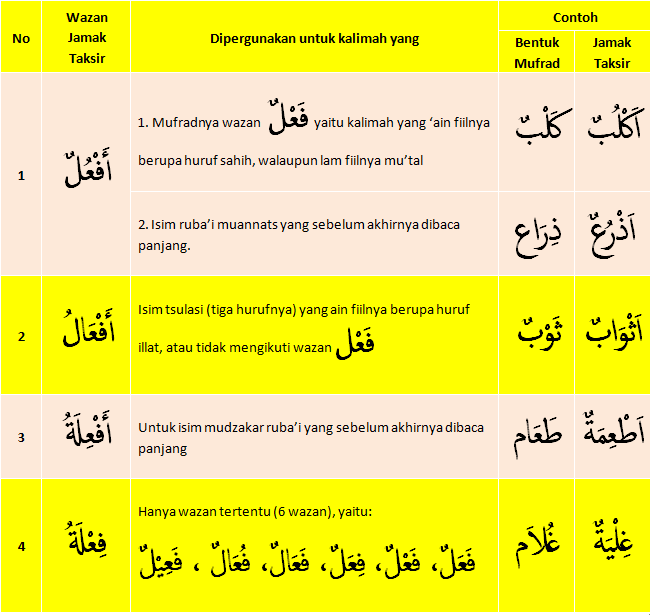 No
Wazan
Jamak
Taksir
Dipergunakan untuk kalimah yang
Contoh
Bentuk
Mufrad
Jamak
Taksir
1
أَفْعُلٌ
1. Mufradnya wazan فَعْلٌ yaitu kalimah yang ‘ain fiilnya
berupa huruf sahih, walaupun lam fiilnya mu’tal
كَلْبٌ
اَكْلُبٌ
2. Isim ruba’i muannats yang sebelum akhirnya dibaca
panjang.
ذِرَاع
اَذْرُعٌ
2
أَفْعَالٌ
Isim tsulasi (tiga hurufnya) yang ain fiilnya berupa huruf
illat, atau tidak mengikuti wazan فَعْل
ثَوْبٌ
اَثْوَابٌ
3
أَفْعِلَةٌ
Untuk isim mudzakar ruba’i yang sebelum akhirnya dibaca
panjang
طَعَام
اَطْعِمَةٌ
4
فِعْلَةٌ
Hanya wazan tertentu (6 wazan), yaitu:
فَعَلٌ، فَعْلٌ، فِعَلٌ، فَعَالٌ، فُعَالٌ ، فَعِيْلٌ
غُلاَم
غِلْيَةٌ